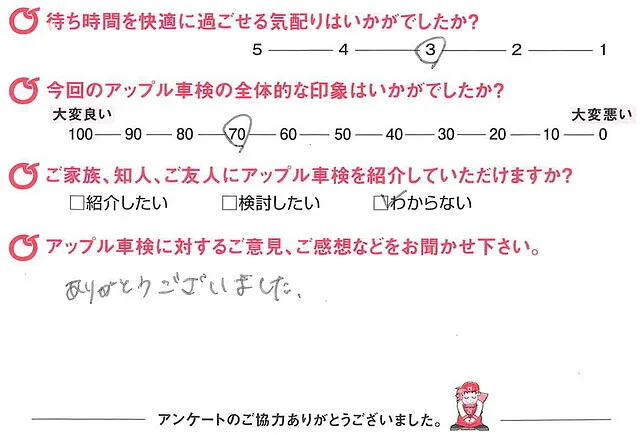 待ち時間を快適に過ごせる気配りはいかがでしたか?
5 4 3 2 1
今回のアップル車検の全体的な印象はいかがでしたか?
大変良い 大変悪い
100 90 80 70 60 50 40 30 20 10 0
ご家族、知人、ご友人にアップル車検を紹介していただけますか?
□紹介したい □検討したい □わからない
アップル車検に対するご意見、ご感想などをお聞かせ下さい。
ありがとうございました。
アンケートのご協力ありがとうございました。